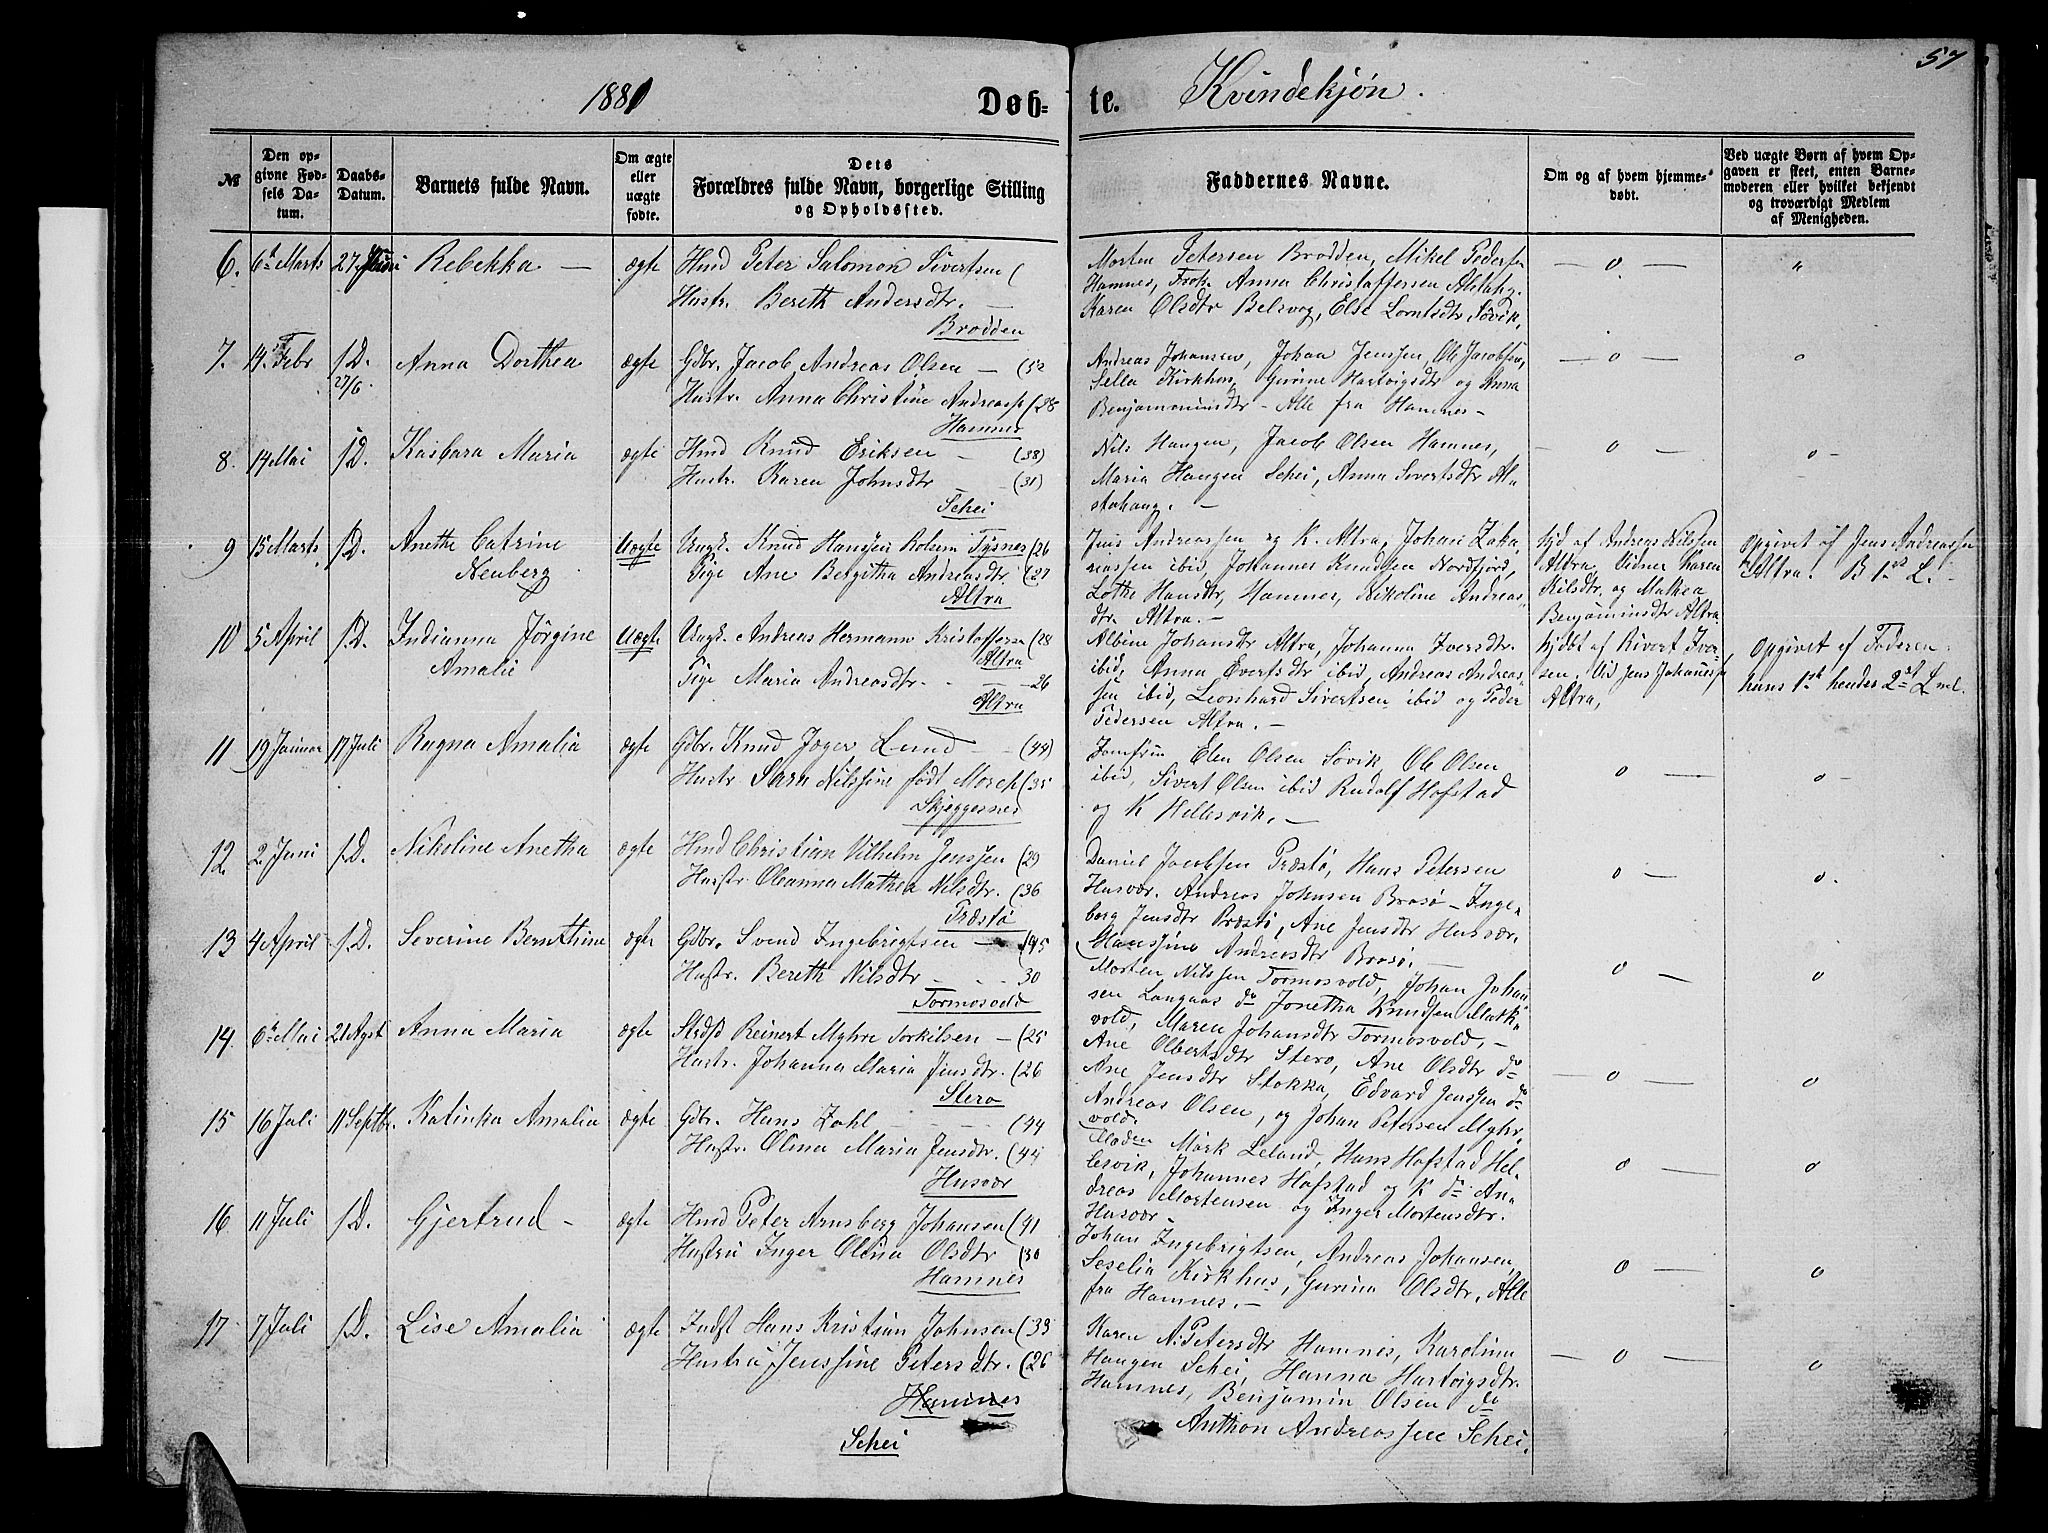 57
1881 Døb-
te. Kvindekjøn.
№
Den op-
givne Fød-
sels Da-
tum.
Daabs-
Datum.
Barnets fulde Navn.
Om ægte
eller
uægte
fødte.
Dets
Forældres fulde Navn, borgerlige Stilling
og Opholdssted.
Faddernes Navne.
Om og af hvem hjemme-
døbt.
Ved uægte Børn af hvem Op-
gaven er skeet, enten Barne-
moderen eller hvilket bekjendt
og troværdigt Medlem
af Menigheden.
6. 6te Marts 27 Juni Rebekka — ægte Hmd Peter Salomon Sivertsen (
Hustr. Bereth Andersdtr. —
Brodden
Morten Petersen Brodden, Mikel Peders
Hamnes, Frøk. Anna Christoffersen Alstahg.
Karen Olsdtr Belsvog, Else Lorntsdtr Søvik.
— o — "
7. 14 Febr S.D. Anna Dorthea ægte Gdbr. Jacob Andreas Olsen — (52
27/6. Hustr. Anna Christine Andreasd (28
Hamnes
Andreas Johansen, Johan Jenssen, Ole Jacobsen,
Sella Kirkhus, Gurine Hartvigsdtr og Anna
Benjamominsdtr — Alle fra Hamnes —
— o — o
8. 14 Mai S.D. Kasbara Maria ægte Hmd Knud Eriksen — (38)
Hustr. Karen Johnsdtr — (31)
Schei
Nils Haugen, Jacob Olsen Hamnes,
Maria Haugen Schei, Anna Sivertsdtr Al-
stahaug. —
— o — o —
9 15 Marts S.D. Anethe Catrine Uægte Ungk. Knud Hanssen Rolsem Tysnes (26
Neuberg Pige Ane Bergitha Andreasdtr. (27
Altra
Jens Andreassen og K. Altra, Johan Zaka-
riassen ibid, Johannes Knudsen Nordfjord,
Lothe Hansdtr, Hamnes, Nikoline Andreas-
dtr. Altra. —
Hjd af Andreas Nilssen
Altra. Vidner Karen
Nilsdtr. og Mathea
Benjaminsdtr Altra
Opgivet af Jens Andreassen
Altra. B 1ste L. —
10 5 April S.D. Indianna Jørgine Uægte Ungk. Andreas Hermann Kristoffersen (28
Altra
Amalie Pige Maria Andreasdtr. — 26
Altra
Albine Johansdtr Altra, Johanna Iversdtr.
ibid, Anna Evertsdtr ibid, Andreas Andreas-
sen ibid, Leonhard Sivertsen ibid og Peder
Pedersen Altra. —
hjdbt af Sivert Iver-
sen. Vid Jens Johanessen
Altra,
Opgivet af Faderen
hans 1ste hendes 2det L ml.
11 19 Januar 17 Juli Ragna Amalia ægte Gdbr. Knud Jæger Lund — (44)
Hustr Sara Nilssine født Morch (35
Skjeggesnes
Jomfru Elen Olsen Søvik, Ole Olsen
ibid, Sivert Olsen ibid Rudolf Hofstad
og K Hellesvik. —
o — o —
12. 2 Juni S.D. Nikoline Anetha ægte Hmd Christian Vilhelm Jenssen (29
Hustr Oleanna Mathea Nilsdtr. (36
Præstø
Daniel Jacobsen Præstø, Hans Petersen
Husvær. Andreas Johnsen Brasø — Inge-
borg Jensdtr Præstø, Ane Jensdtr Husvær.
Hanssine Andreasdtr Brasø. —
o — o.
13 4 April S.D. Severine Bernthine ægte Gdbr. Svend Ingebrigtsen — (45
Hustr. Bereth Nilsdtr — 30
Tormosvold
Morten Nilssen Tormosvold, Johan Johan-
sen Langaas do Jonetha Knudsen Mark-
vold, Maren Johansdtr Tormosvold. —
o — o
14. 6te Mai 21 Agst Anna Maria ægte Strdsd Reinert Myhre Torkilsen — (25
Hustr. Johanna Maria Jensdtr. (26
Stero
Ane Olbertsdtr Stero, Ane Olsdtr do
Ane Jensdtr Stokka, Edvard Jenssen do
Andreas Olsen, og Johan Petersen Myhr-
vold.
— o — o
15 16 Juli 11 Septbr. Katinka Amalia ægte Gdbr. Hans Zahl — (44
Hustr. Olina Maria Jensdtr. (44
Husvær
Mødren Mark Leland, Hans Hofstad Hel-
lesvik, Johannes Hofstad og K do An-
dreas Mortensen og Inger Mortensdtr.
Husvær —
o — o
16. 11 Juli S.D. Gjertrud — ægte Hmd Peter Arnsberg Johansen (41
Hustru Inger Olina Olsdtr (30
Hamnes
Johan Ingebrigtsen, Andreas Johansen,
Seselia Kirkhus, Gurina Olsdtr, Alle
fra Hamnes. —
o — o
17. 7 Juli S.D. Lise Amalia ægte Indst Hans Kristian Johnsen (33
Hustru Jenssine Petersdtr. (26
Hamnes
Schei
Karen A. Petersdtr Hamnes, Karolina
Haugen Schei, Hanna Hartvigsdtr.
Hamnes, Benjamin Olsen do
Anthon Andreassen Schei.
— o — o